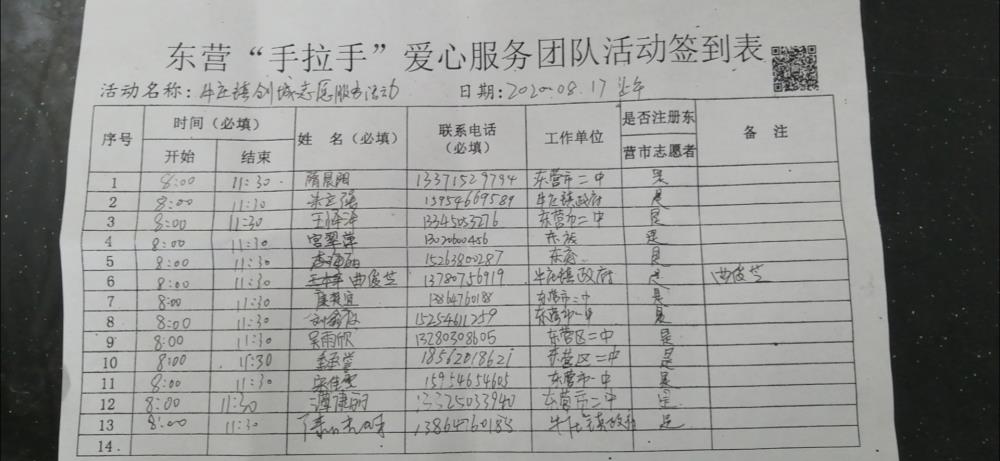 东营“手拉手”爱心服务团队活动签到表
活动名称：牛庄镇创城志愿服务活动 日期：2020.08.17 上午
序号 时间（必填） 姓 名（必填） 联系电话（必填） 工作单位 是否注册东营市志愿者 备 注
开始 结束
1 8:00 11:30 隋晨阳 13371529794 东营市二中 是
2 8:00 11:30 15954669589 牛庄镇政府 是
3 8:00 11:30 王泽泽 13345053276 东营市二中 是
4 8:00 11:30 宫翠萍 13020600456 是
5 8:00 11:30 15263800287 是
6 8:00 11:30 曲俊芝 13780756919 牛庄镇政府 是 曲俊芝
7 8:00 11:30 13864760188 东营市二中 是
8 8:00 11:30 15254611259 东营市一中 是
9 8:00 11:30 吴雨欣 13280308605 东营区二中 是
10 8:00 11:30 18562018621 东营区二中 是
11 8:00 11:30 宋佳雯 15954654605 东营市一中 是
12 8:00 11:30 谭健丽 13325033940 东营市二中 是
13 8:00 11:30 13864760185 牛庄镇政府 是
14